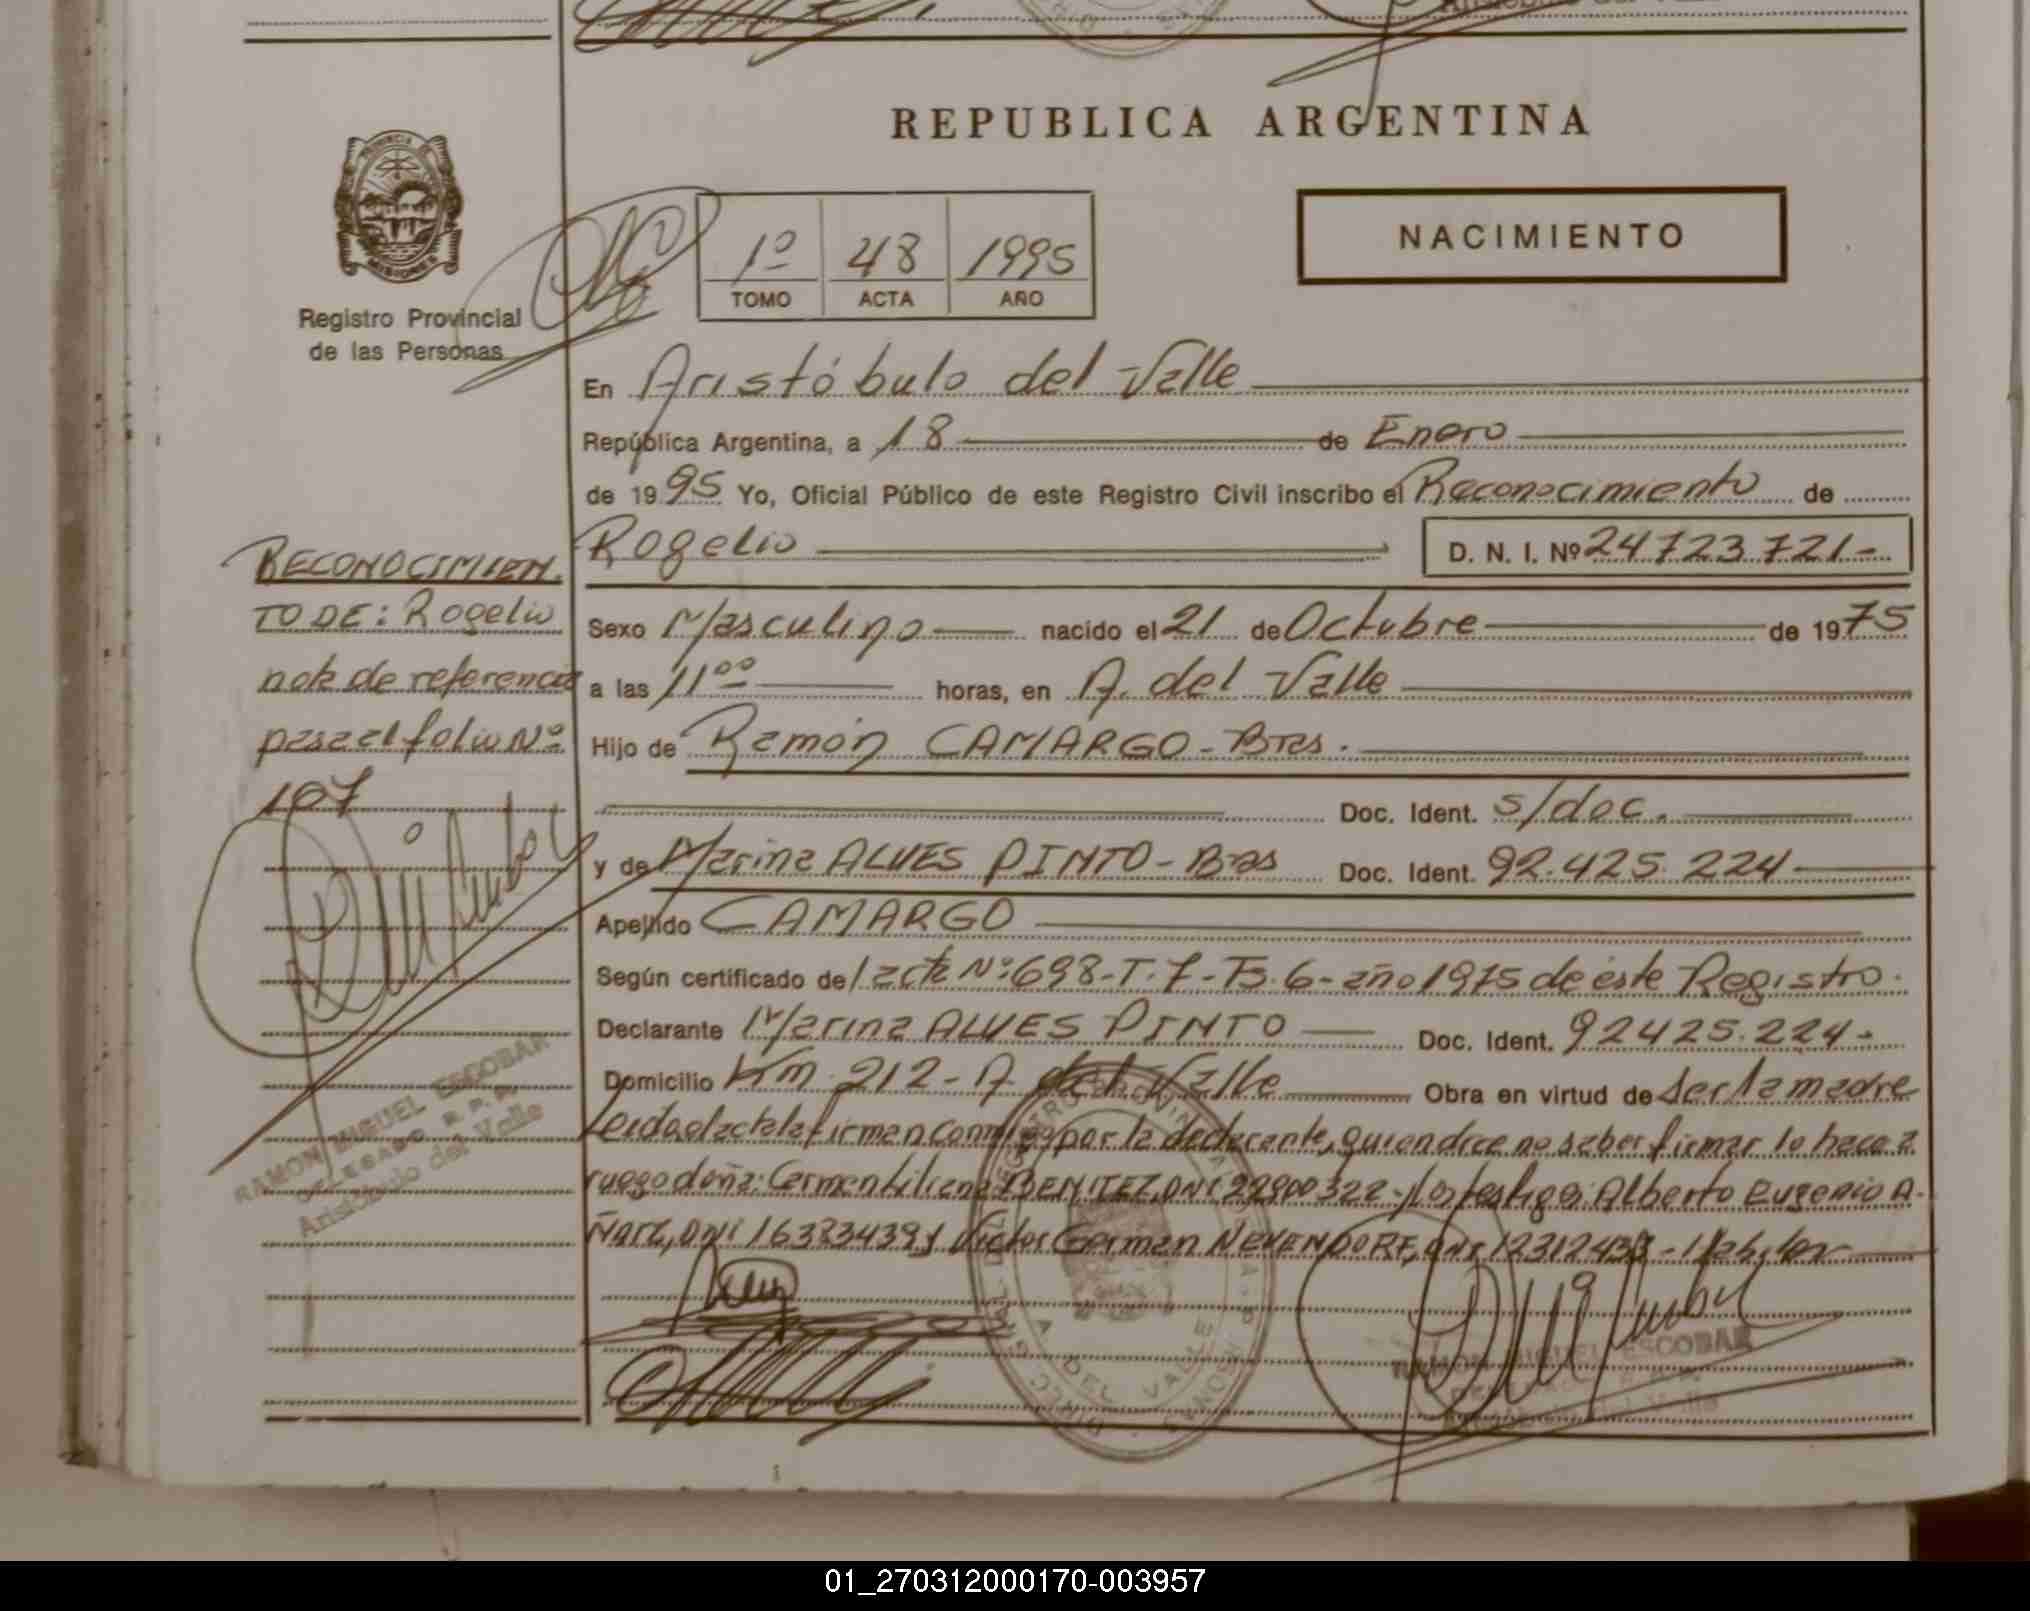 REPUBLICA ARGENTINA
PROVINCIA DE
MISIONES
Registro Provincial
de las Personas
1º 48 1995
TOMO ACTA AÑO
NACIMIENTO
En Aristóbulo del Valle
República Argentina, a 18 de Enero
de 1995 Yo, Oficial Público de este Registro Civil inscribo el Reconocimiento de
Rogelio D. N. I. Nº 24723721-
RECONOCIMIEN.
TO DE: Rogelio
nota de referencia
pasa al folio Nº
107
Sexo Masculino nacido el 21 de Octubre de 1975
a las 11ºº horas, en A. del Valle
Hijo de Ramón CAMARGO - Bras.
Doc. Ident. s/doc.
y de Marina ALVES PINTO - Bras Doc. Ident. 92.425.224
Apellido CAMARGO
Según certificado de l acta Nº: 698-T. 7-Ts. 6- año 1975 de éste Registro.
Declarante Marina ALVES PINTO Doc. Ident. 92425.224-
Domicilio Km. 212 - A. del Valle Obra en virtud de ser la madre
Leida el acta la firman conmigo por la declarante, quien dice no saber firmar lo hace a
ruego doña: Carmen Liliana BENITEZ, DNI 22900322-/ los testigos: Alberto Eugenio A-
ÑarE, DNI 16383439 y Victor German NEVENDORF, DNI 12312433-
RAMON MIGUEL ESCOBAR
DELEGADO R. P. P.
Aristóbulo del Valle
RAMON MIGUEL ESCOBAR
01_270312000170-003957